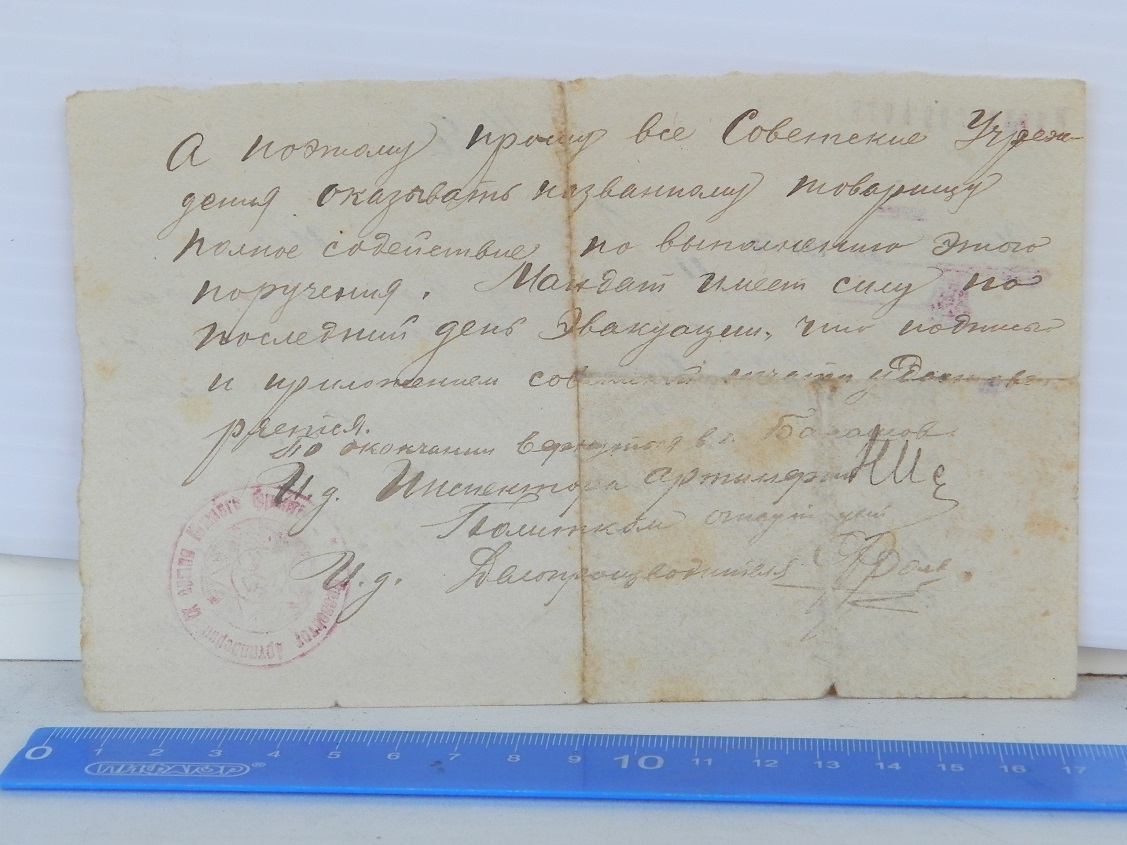 А поэтому прошу все Советские Учреж-
дения оказывать названному товарищу
полное содействие по выполнению этого
поручения. Мандат имеет силу по
последний день Эвакуации, что подписью
и приложением советской печати удостове-
ряется.
По окончании вернуться в г. Балашов.
И.д. Инспектора артиллерии
Политком
И.д. Делопроизводителя
Артиллерии
0 1 2 3 4 5 6 7 8 9 10 11 12 13 14 15 16 17